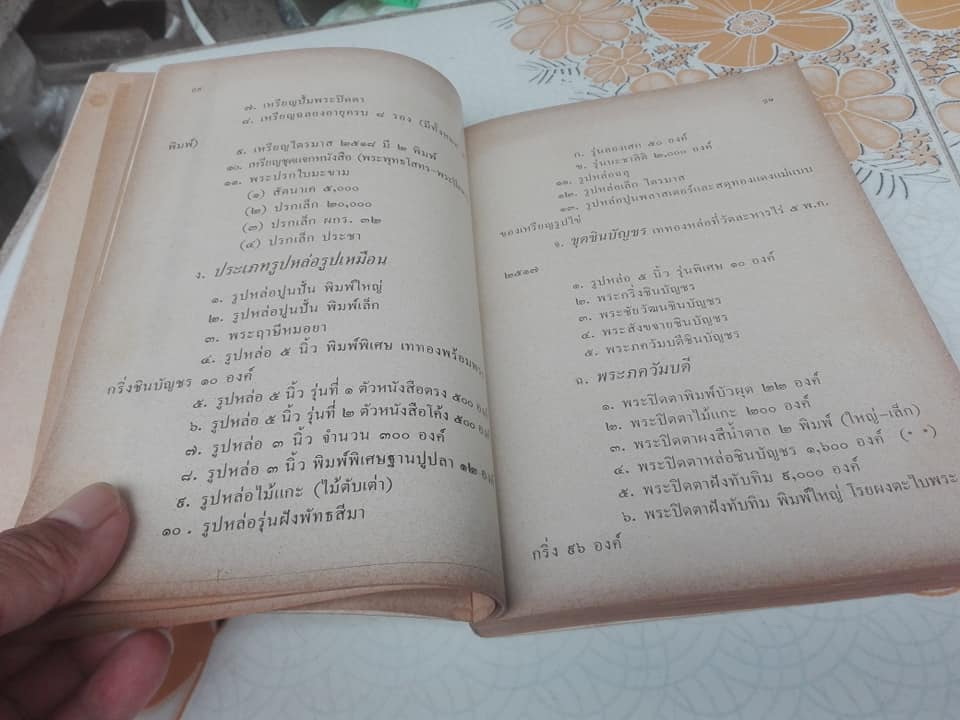 ๗. เหรียญปั้มพระปิดตา
๘. เหรียญฉลองอายุครบ ๘ รอง (มีทั้งหมด
พิมพ์)
๙. เหรียญไตรมาส ๒๕๑๘ มี ๒ พิมพ์
๑๐. เหรียญชุดแจกหนังสือ (พระพุทธโสทร–พระปิด
๑๑. พระปรกใบมะขาม
(๑) สัตนาเค ๕,๐๐๐
(๒) ปรกเล็ก ๒๐,๐๐๐
(๓) ปรกเล็ก ผกร. ๓๒
(๔) ปรกเล็ก ประชา
ง. ประเภทรูปหล่อรูปเหมือน
๑. รูปหล่อปูนปั้น พิมพ์ใหญ่
๒. รูปหล่อปูนปั้น พิมพ์เล็ก
๓. พระฤาษีหมอยา
๔. รูปหล่อ ๕ นิ้ว พิมพ์พิเศษ เททองพร้อมพระ
กริ่งชินบัญชร ๑๐ องค์
๕. รูปหล่อ ๕ นิ้ว รุ่นที่ ๑ ตัวหนังสือตรง ๕๐๐ องค์
๖. รูปหล่อ ๕ นิ้ว รุ่นที่ ๒ ตัวหนังสือโค้ง ๕๐๐ องค์
๗. รูปหล่อ ๓ นิ้ว จำนวน ๓๐๐ องค์
๘. รูปหล่อ ๓ นิ้ว พิมพ์พิเศษฐานปูปลา ๑๒ องค์
๙. รูปหล่อไม้แกะ (ไม้ตับเต่า)
๑๐. รูปหล่อรุ่นฝังพัทธสีมา
ก. รุ่นลองเสก ๕๐ องค์
ข. รุ่นบะชาติติ ๒,๐๐๐ องค์
๑๑. รูปหล่อฉฎู
๑๒. รูปหล่อเล็ก ไตรมาส
๑๓. รูปหล่อปูนพลาสเตอร์และสตุทองแดงแม่แบบ
ของเหรียญรูปไข่
จ. ชุดชินบัญชร เททองหล่อที่วัดละหารไร่ ๕ พ.ก.
๒๕๑๗
๑. รูปหล่อ ๕ นิ้ว รุ่นพิเศษ ๑๐ องค์
๒. พระกริ่งชินบัญชร
๓. พระชัยวัฒนชินบัญชร
๔. พระสังขจายชินบัญชร
๕. พระภควัมบดีชินบัญชร
ฉ. พระภควัมบดี
๑. พระปิดตาพิมพ์บัวผุด ๒๒ องค์
๒. พระปิดตาไม้แกะ ๒๐๐ องค์
๓. พระปิดตาผงสีน้ำตาล ๒ พิมพ์ (ใหญ่–เล็ก)
๔. พระปิดตาหล่อชินบัญชร ๑,๖๐๐ องค์
๕. พระปิดตาฝังทับทิม ๕,๐๐๐ องค์
๖. พระปิดตาฝังทับทิม พิมพ์ใหญ่ โรยผงตะไบพระ
กริ่ง ๙๖ องค์